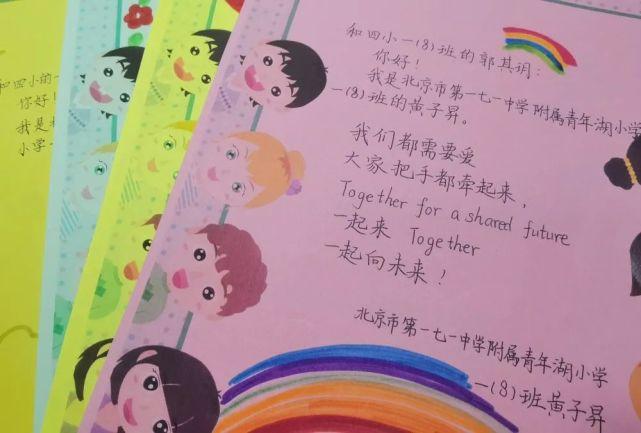 和四小一(8)班的郭其玥:
你好!
我是北京市第一七一中学附属青年湖小学
一(8)班的黄子昇。
我们都需要爱
大家把手都牵起来,
Together for a shared future
一起来 Together
一起向未来!
北京市第一七一中学附属青年湖小学
一(8)班黄子昇
和四小的一
你好!
我是
小学一